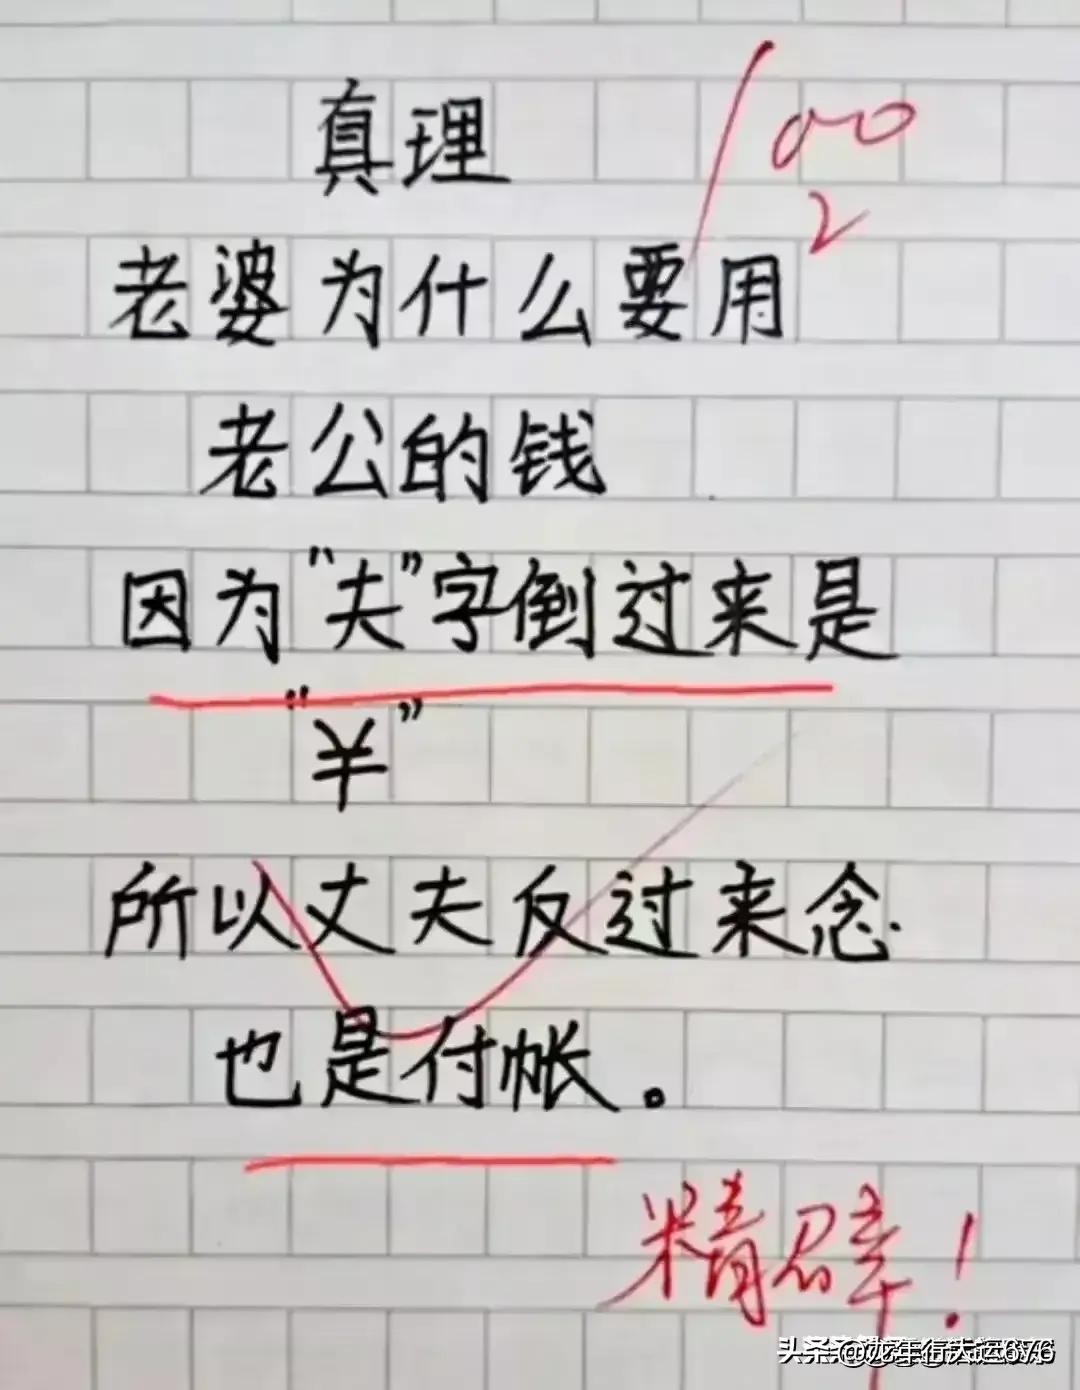 真理
100
2
老婆为什么要用
老公的钱
因为“夫”字倒过来是
“¥”
所以丈夫反过来念
也是付帐。
精辟!